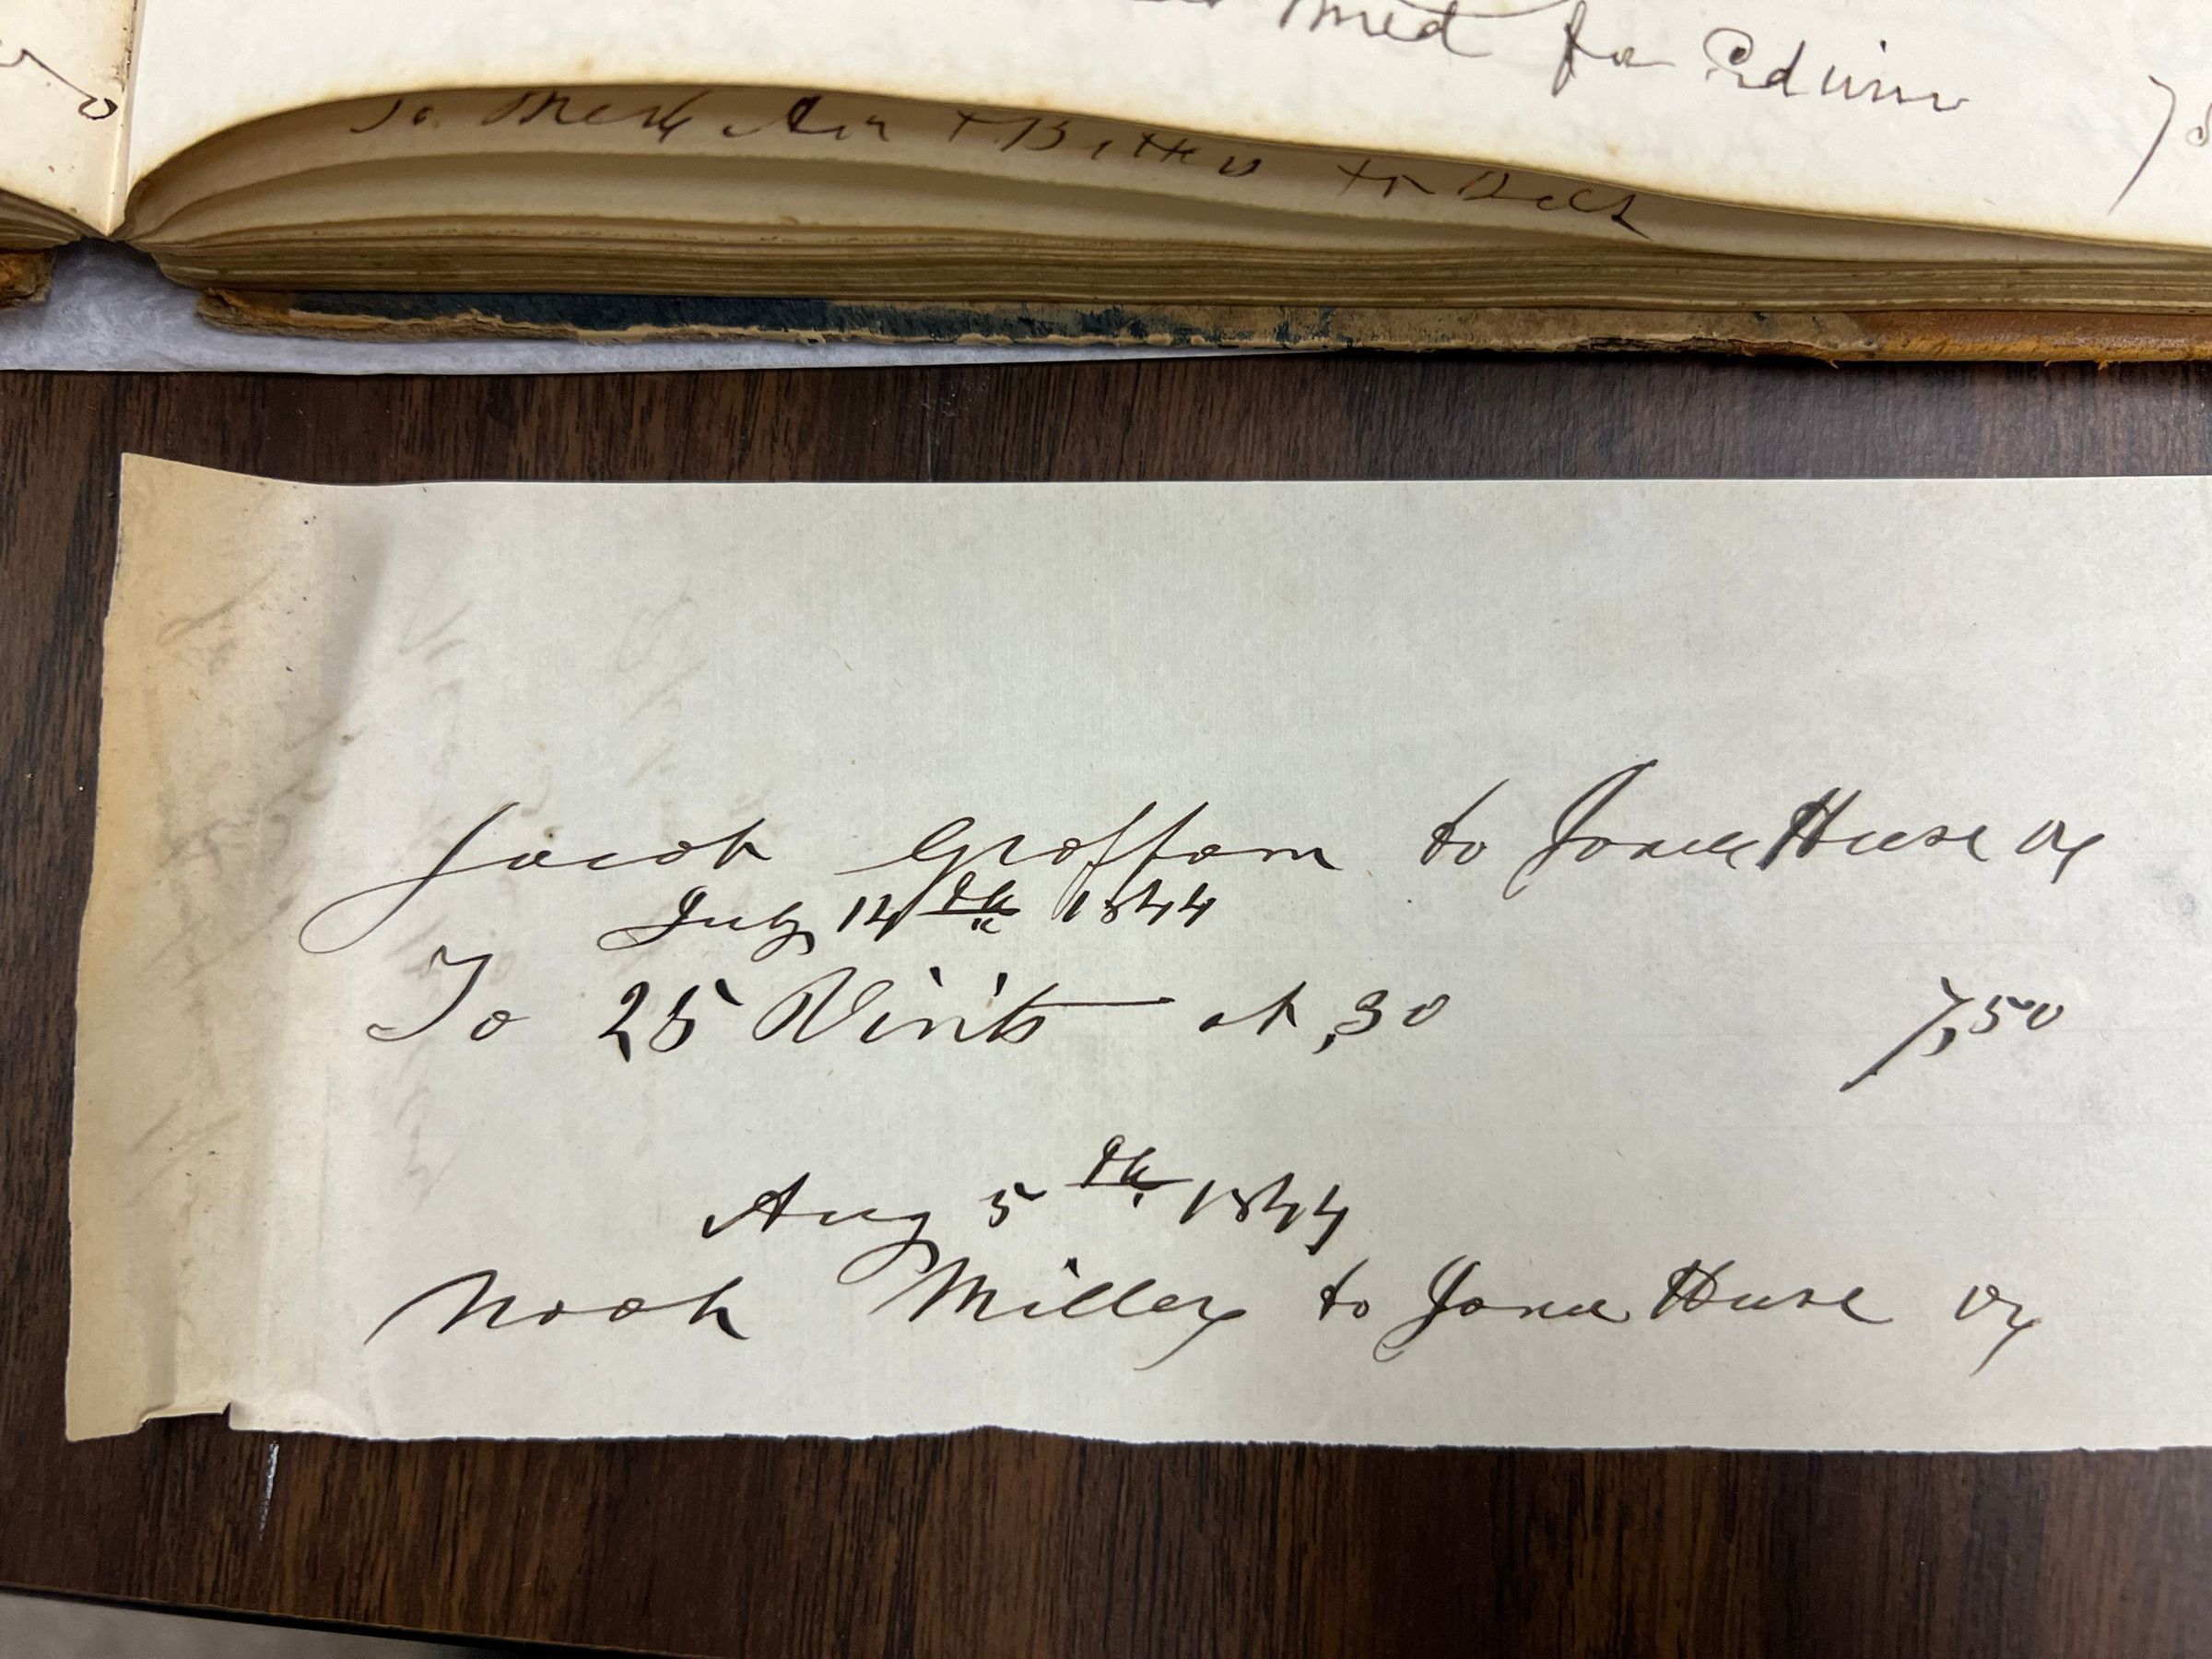 med for Edwin 75
To Mesh Air + Bitters to Dect
Jacob Groffam to James Huse Dr
July 14th 1844
To 25 Visits at ,30 7,50
Aug 5th 1844
Noah Miller to James Huse Dr